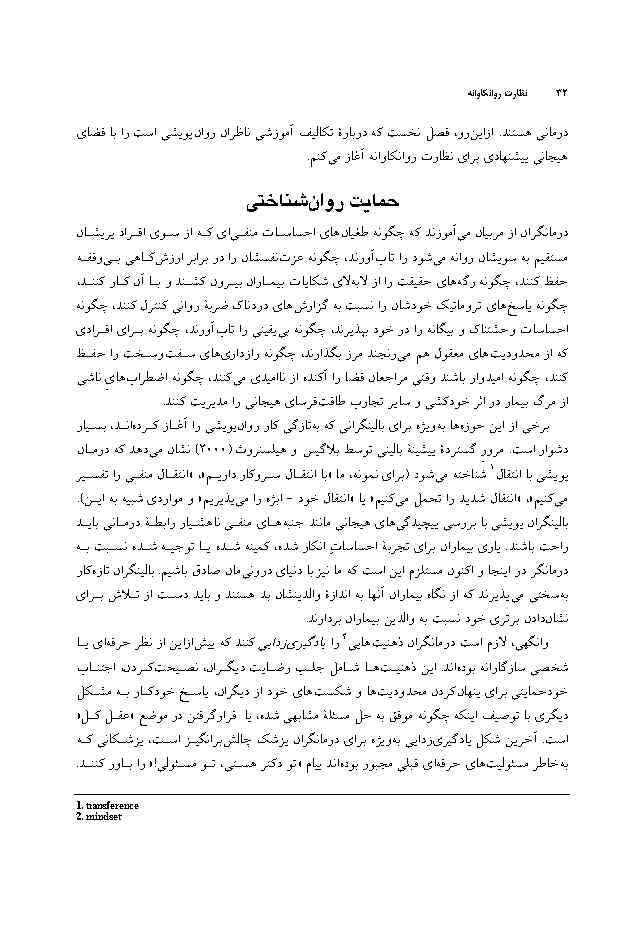 ۳۲ نظارت روانکاوانه
درمانی هستند. ازاین‌رو، فصل نخست که دربارهٔ تکالیف آموزشی ناظران روان‌پویشی است را با فضای
هیجانی پیشنهادی برای نظارت روانکاوانه آغاز می‌کنم.
حمایت روان‌شناختی
درمانگران از مربیان می‌آموزند که چگونه طغیان‌های احساسات منفی‌ای که از سوی افراد زیرپایشان
مستقیم به سویشان روانه می‌شود را تاب‌آورند، چگونه عزت‌نفسشان را در برابر ارزش‌کاهی بی‌وقفه
حفظ کنند، چگونه رگه‌های حقیقت را از لابه‌لای شکایات بیماران بیرون کشند و با آن کار کنند،
چگونه پاسخ‌های تروماتیک خودشان را نسبت به گزارش‌های دردناک ضربهٔ روانی کنترل کنند، چگونه
احساسات وحشتناک و بیگانه را در خود بپذیرند، چگونه بی‌یقینی را تاب آورند، چگونه برای افرادی
که از محدودیت‌های معقول هم می‌رنجند مرز بگذارند، چگونه رازداری‌های سفت‌وسخت را حفظ
کنند، چگونه امیدوار باشند وقتی مراجعان فضا را آکنده از ناامیدی می‌کنند، چگونه اضطراب‌هایِ ناشی
از مرگ بیمار در اثر خودکشی و سایر تجارب طاقت‌فرسای هیجانی را مدیریت کنند.
برخی از این حوزه‌ها به‌ویژه برای بالینگرانی که به‌تازگی کار روان‌پویشی را آغاز کرده‌اند، بسیار
دشوار است. مرورِ گستردهٔ پیشینهٔ بالینی توسط بلاگیس و هیلسنروث (۲۰۰۰) نشان می‌دهد که درمان
پویشی با انتقال۱ شناخته می‌شود (برای نمونه، اما «با انتقال سروکار داریم»، «انتقال منفی را تفسیر
می‌کنیم»، «انتقال شدید را تحمل می‌کنیم» یا «انتقال خود - ابژه را می‌پذیریم» و مواردی شبیه به این).
بالینگران پویشی با بررسی پیچیدگی‌های هیجانی مانند جنبه‌های منفی هشیارانهٔ رابطهٔ درمانی باید
راحت باشند. یاری بیماران برای تجربهٔ احساساتِ انکار شده، کمینه شده یا توجیه شده نسبت به
درمانگر در اینجا و اکنون مستلزم این است که ما نیز با دنیای درونی‌مان صادق باشیم. بالینگران تازه‌کار
به‌سختی می‌پذیرند که از نگاه بیماران آنها به اندازهٔ والدینشان بد هستند و باید دست از تلاش برای
نشان‌دادن برتری خود نسبت به والدین بیماران بردارند.
وانگهی، لازم است درمانگران ذهنیت‌هایی۲ را یادگیری‌زدایی کنند که پیش‌ازاین از نظر حرفه‌ای یا
شخصی سازگارانه بوده‌اند. این ذهنیت‌ها شامل جلب رضایت دیگران، نصیحت‌کردن، اجتناب
خودحمایتی برای پنهان‌کردن محدودیت‌ها و شکست‌های خود از دیگران، پاسخ خودکار به مشکل
دیگری با توصیف اینکه چگونه موفق به حل مسئلهٔ مشابهی شده، یا قرارگرفتن در موضع «عقل کل»
است. آخرین شکل یادگیری‌زدایی به‌ویژه برای درمانگران پزشک چالش‌برانگیز است، پزشکانی که
به‌خاطر مسئولیت‌های حرفه‌ای قبلی مجبور بوده‌اند پیام «تو دکتر هستی، تو مسئولی!» را باور کنند.
1. transference
2. mindset